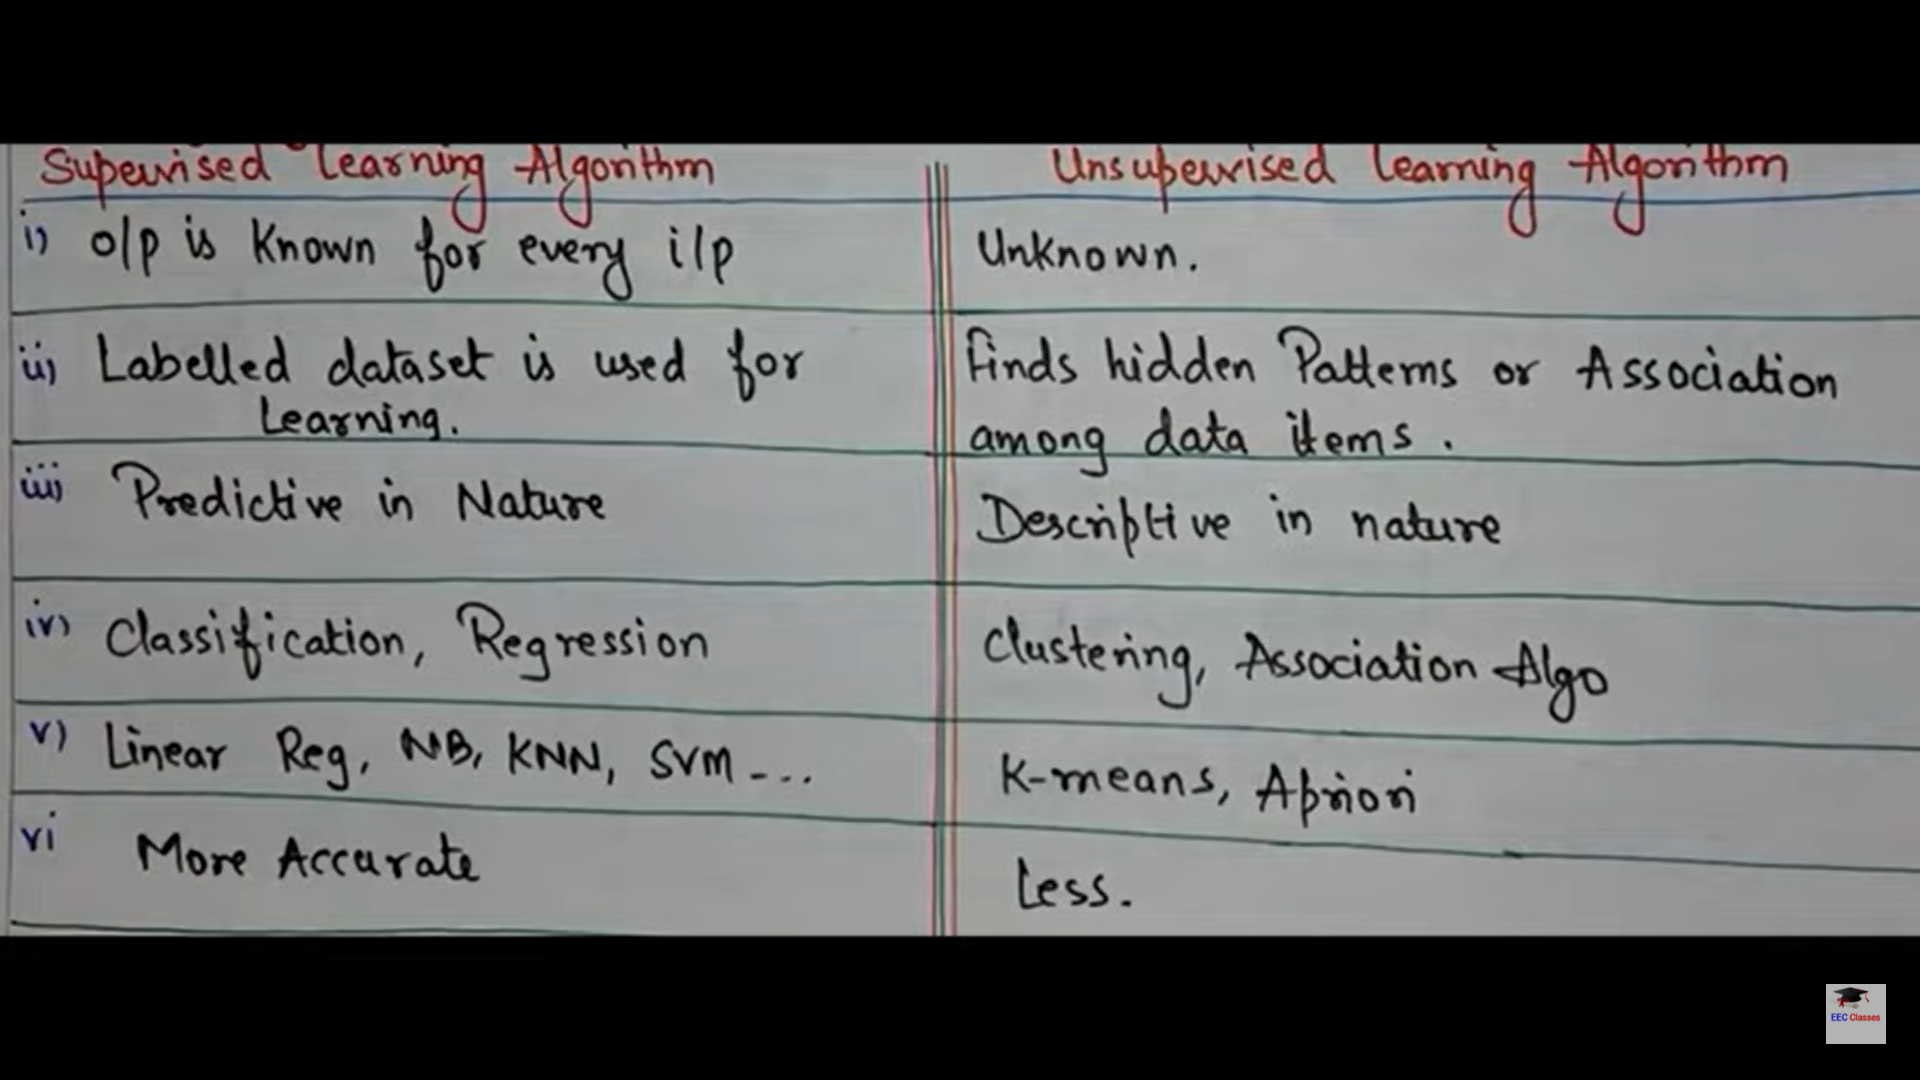 Supervised Learning Algorithm
Unsupervised Learning Algorithm
i) o/p is Known for every i/p
Unknown.
ii) Labelled dataset is used for
Learning.
Finds hidden Patterns or Association
among data items.
iii) Predictive in Nature
Descriptive in nature
iv) Classification, Regression
Clustering, Association Algo
v) Linear Reg, NB, KNN, SVM - ...
K-means, Apriori
vi More Accurate
Less.
EEC Classes